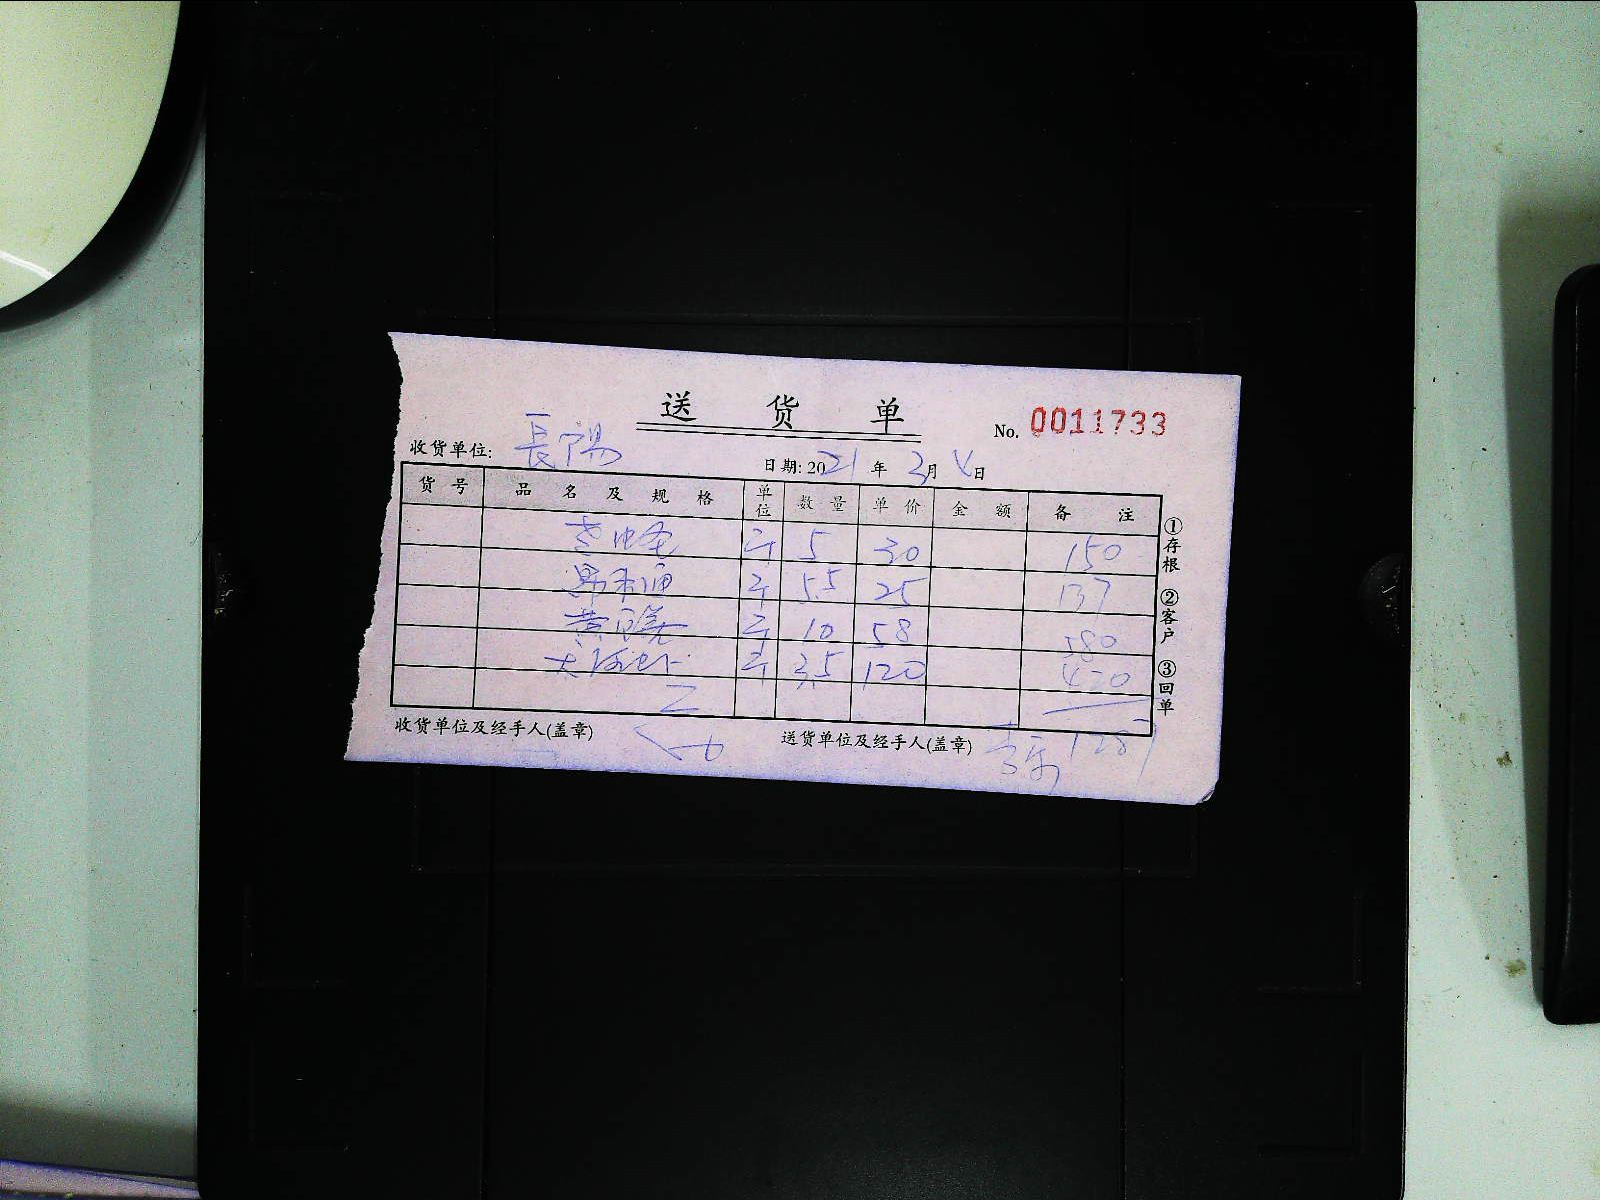 送 货 单
No. 0011733
收货单位: 長陽
日期: 2021 年 3月 日
货 号 品 名 及 规 格 单位 数 量 单 价 金 额 备 注
斤 5 30 150
斤 5.5 25 137
斤 10 58 580
大河虾 斤 3.5 120 420
1287
收货单位及经手人(盖章) 送货单位及经手人(盖章)
①存根 ②客户 ③回单